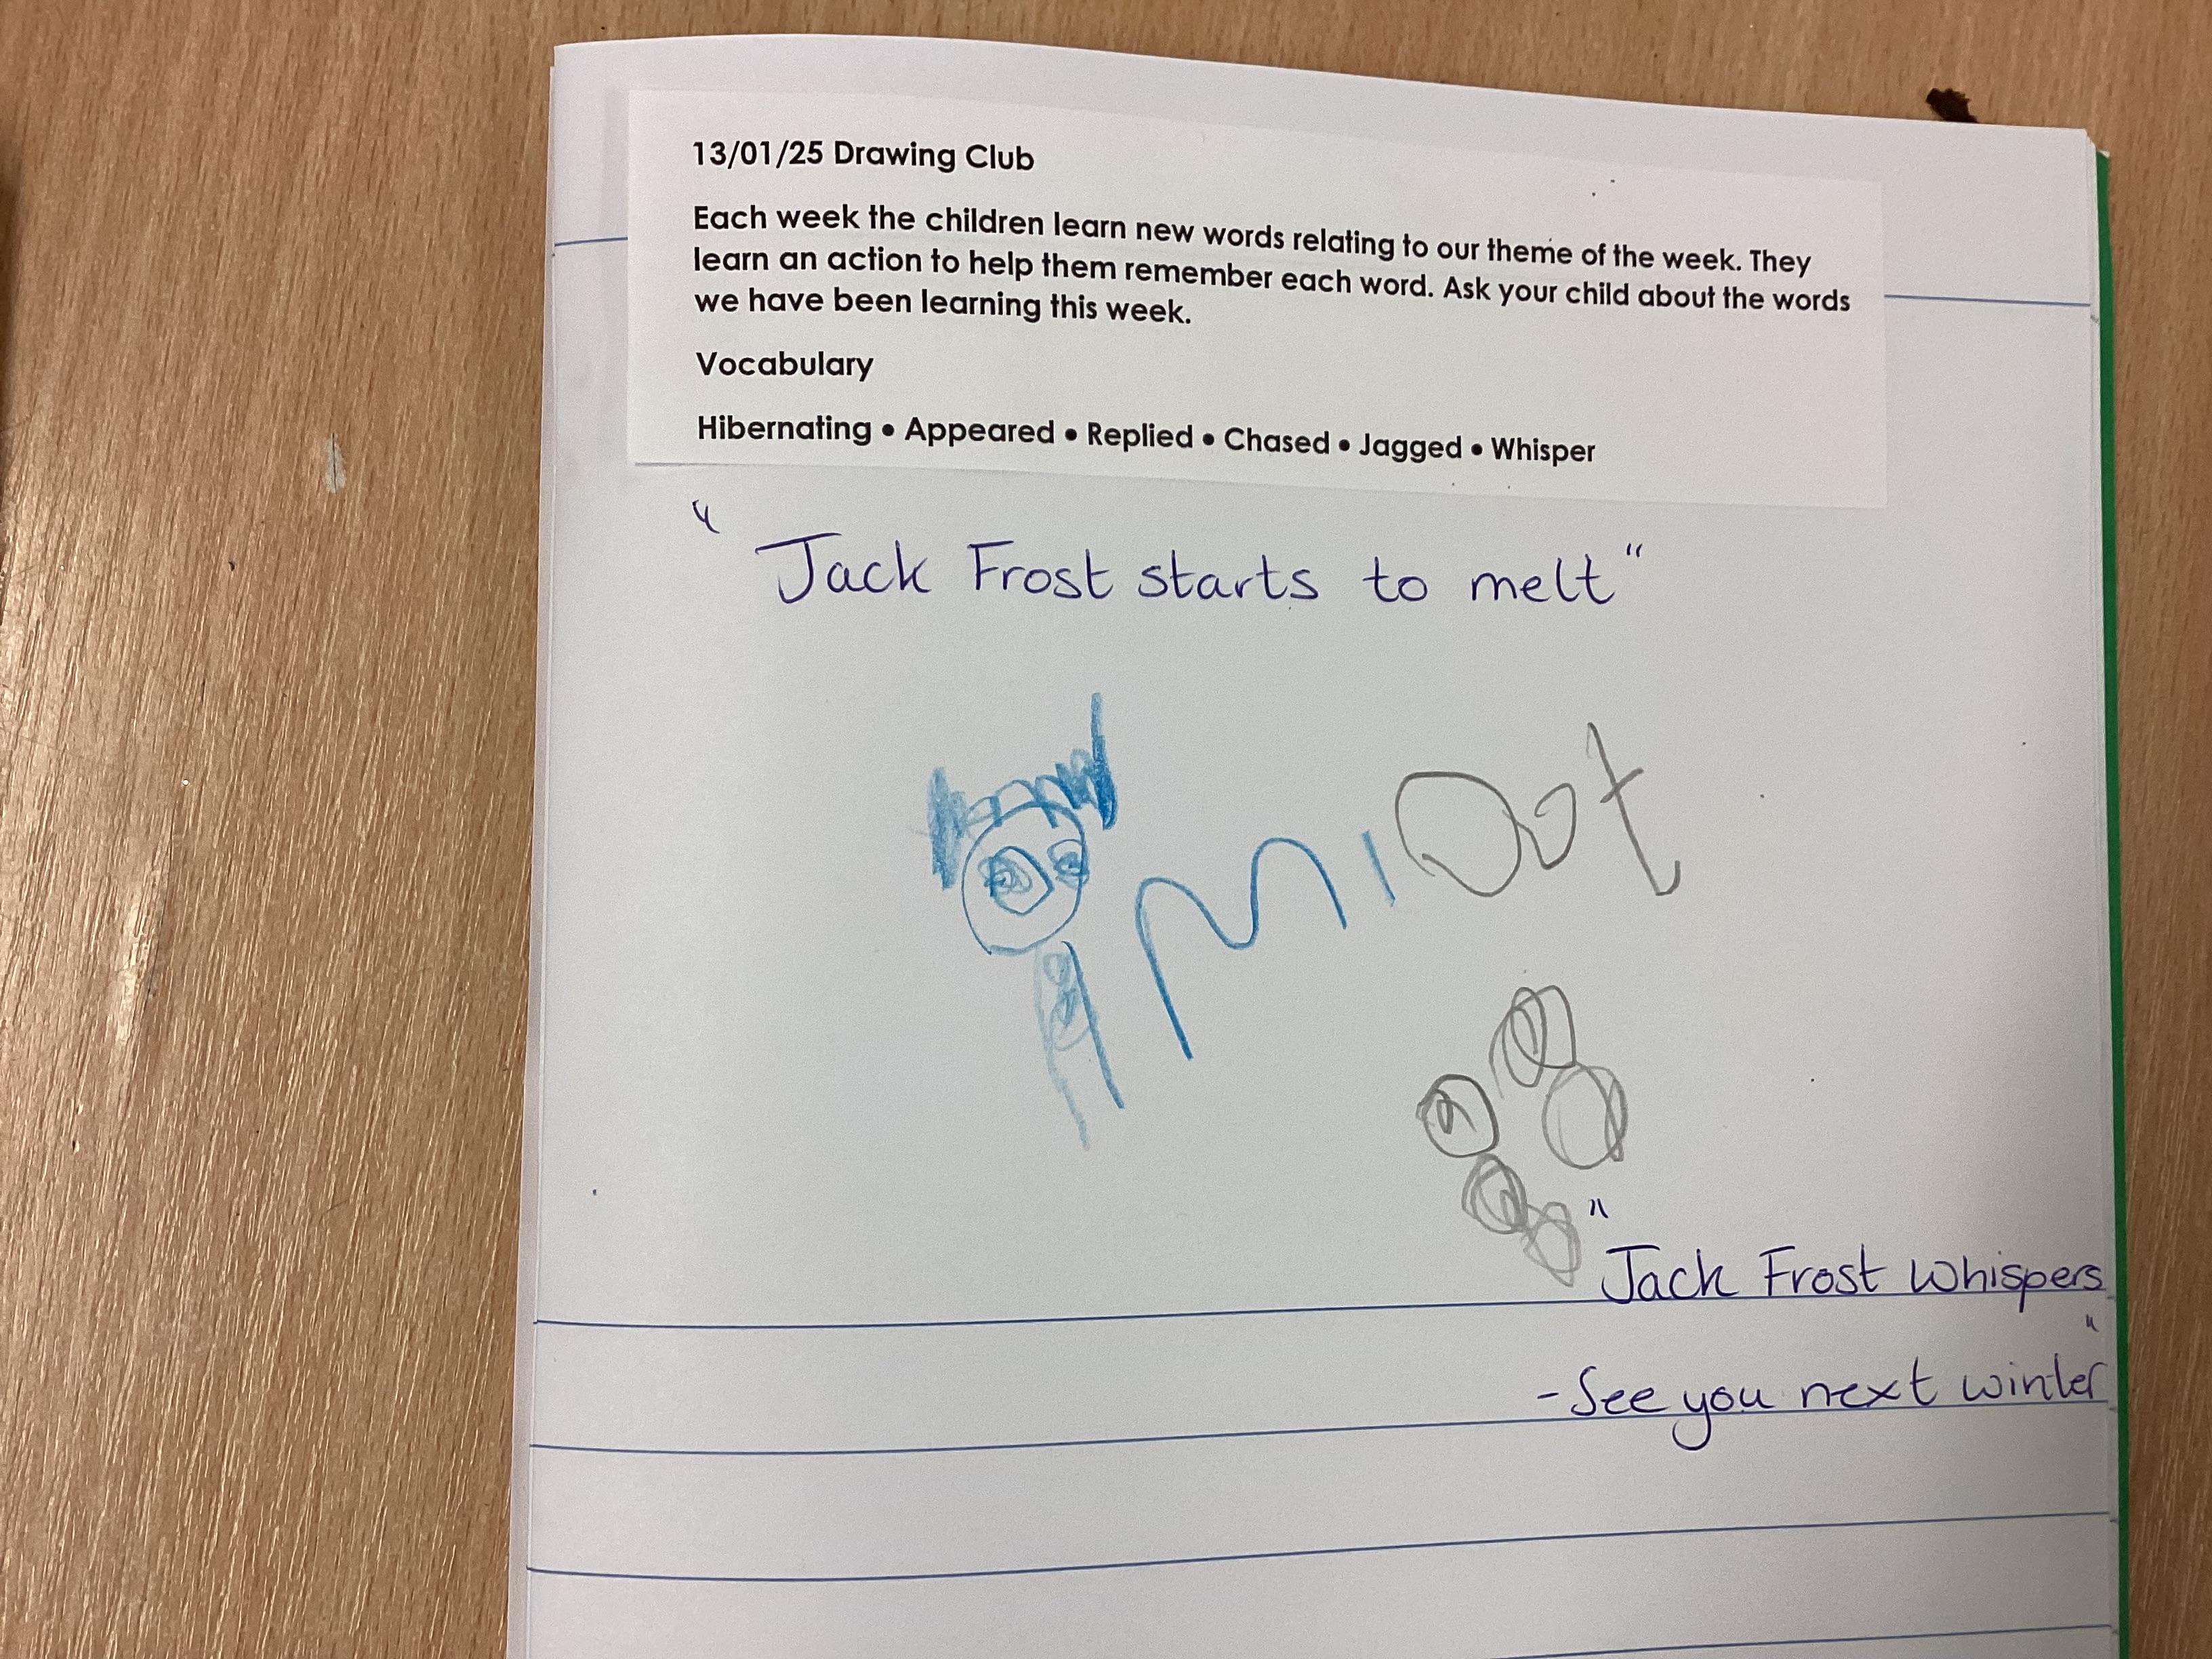 13/01/25 Drawing Club
Each week the children learn new words relating to our theme of the week. They
learn an action to help them remember each word. Ask your child about the words
we have been learning this week.
Vocabulary
Hibernating • Appeared • Replied • Chased • Jagged • Whisper
"Jack Frost starts to melt"
"Jack Frost whispers
- See you next winter"